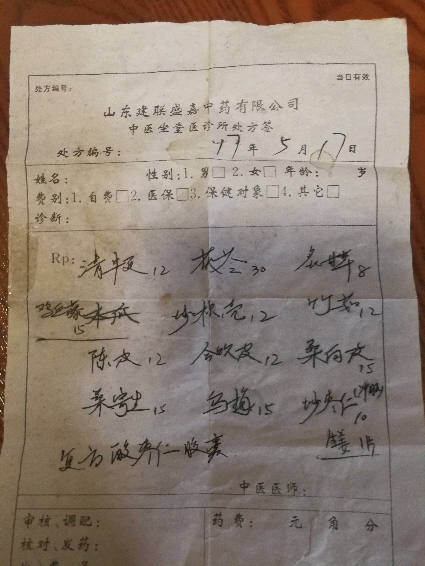 当日有效
处方编号：
山东建联盛嘉中药有限公司
中医坐堂医诊所处方笺
处方编号： 年 5 月 17 日
姓名： 性别：1.男□ 2.女□ 年龄： 岁
费别：1.自费□ 2.医保□ 3.保健对象□ 4.其它□
诊断：
Rp: 清半夏 12 茯苓 30 8
鸡血藤 15 木瓜 炒枳壳 12 竹茹 12
陈皮 12 合欢皮 12 桑白皮 15
桑寄生 15 乌梅 15 炒枣仁 10
复方酸枣仁胶囊
中医医师：
审核、调配： 药费： 元 角 分
核对、发药：